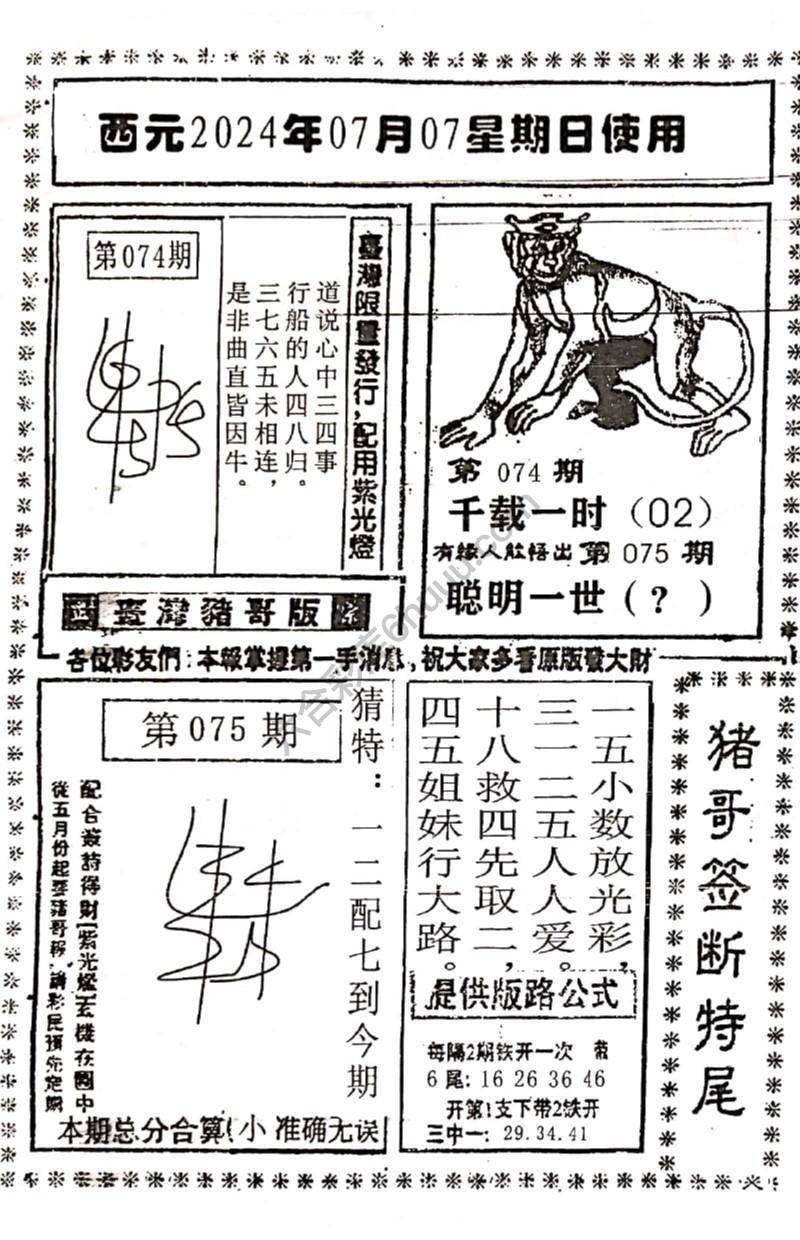 西元2024年07月07星期日使用
第074期
道说心中三四事
行船的人四八归。
三七六五未相连，
是非曲直皆因牛。
臺灣限量發行，配用紫光燈
第074期
千载一时（02）
有緣人能悟出第075期
聪明一世（？）
臺灣豬哥版
各位彩友們：本報掌握第一手消息，祝大家多看原版發大財
第075期
猜特：一二配七到今期
配合叢詩得財（紫光燈）玄機在圖中
從五月份起臺豬哥報，請彩民預先定購
本期总分合算（小 准确无误
一五小数放光彩，
三一二五人人爱。
十八救四先取二，
四五姐妹行大路。
提供版路公式
每隔2期铁开一次 带
6尾：16 26 36 46
开第1支下带2铁开
三中一：29.34.41
猪哥签断特尾
六合彩库6huuu.com